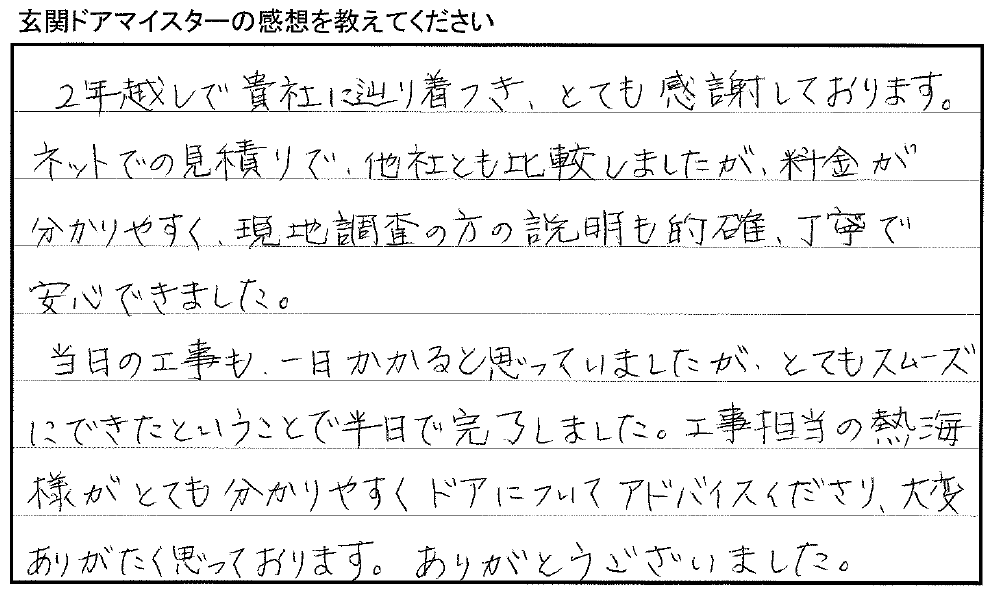 玄関ドアマイスターの感想を教えてください
2年越しで貴社に辿り着つき、とても感謝しております。
ネットでの見積りで、他社とも比較しましたが、料金が
分かりやすく、現地調査の方の説明も的確、丁寧で
安心できました。
当日の工事も、一日かかると思っていましたが、とてもスムーズ
にできたということで半日で完了しました。工事担当の熱海
様がとても分かりやすくドアについてアドバイスくださり、大変
ありがたく思っております。ありがとうございました。